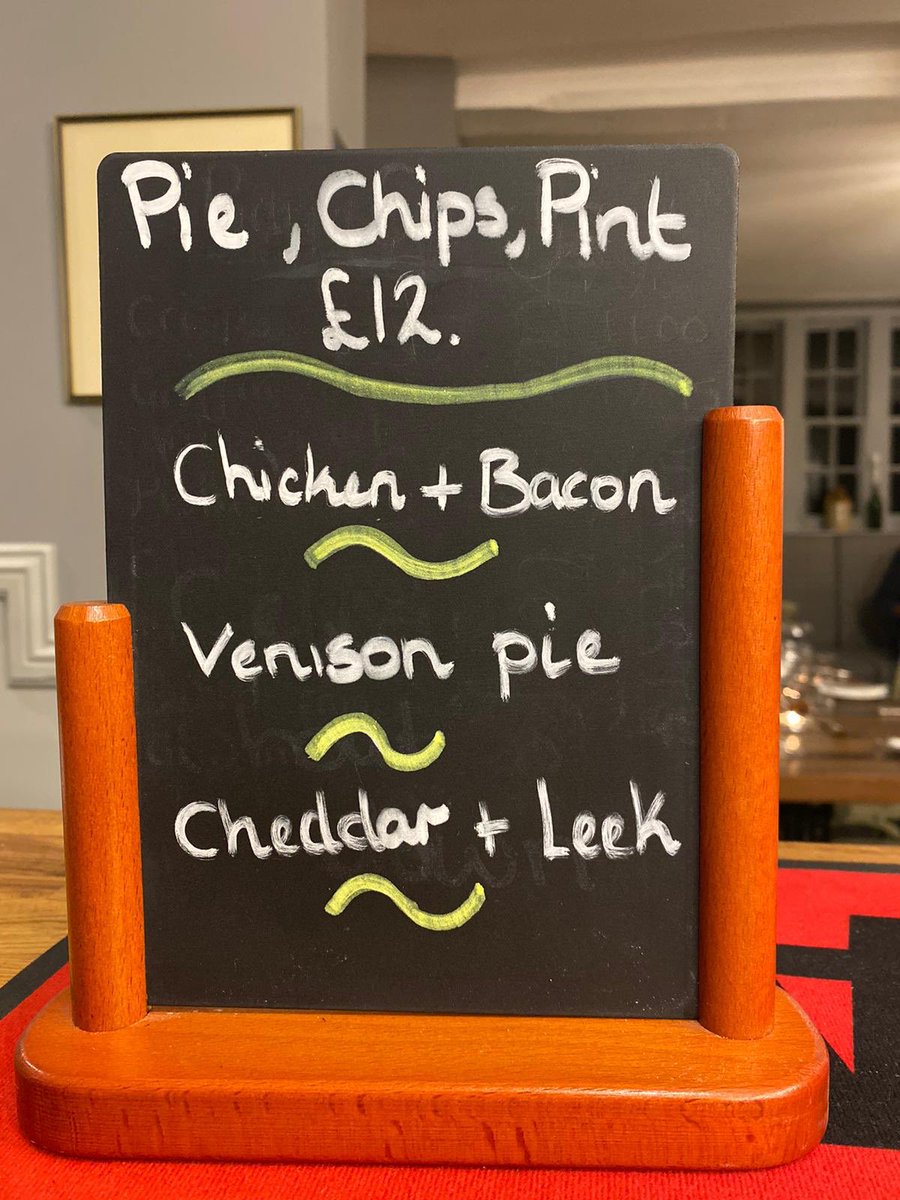 Pie, Chips, Pint
£12.
Chicken + Bacon
Venison pie
Cheddar + Leek